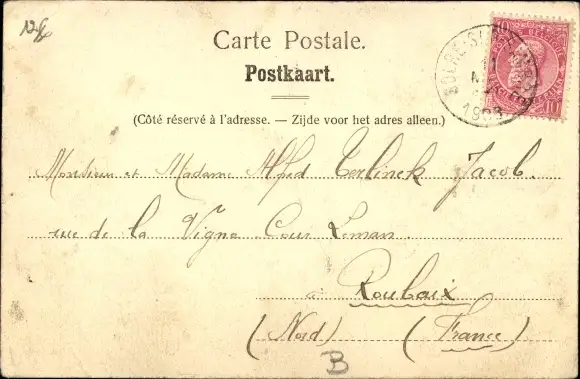 Carte Postale.
Postkaart.
(Côté réservé à l'adresse. — Zijde voor het adres alleen.)
10 10
1903
Monsieur et Madame Alfred Terlinck Jacob.
rue de la Vigne Cour Leman.
à Roubaix
(Nord) (France)
B